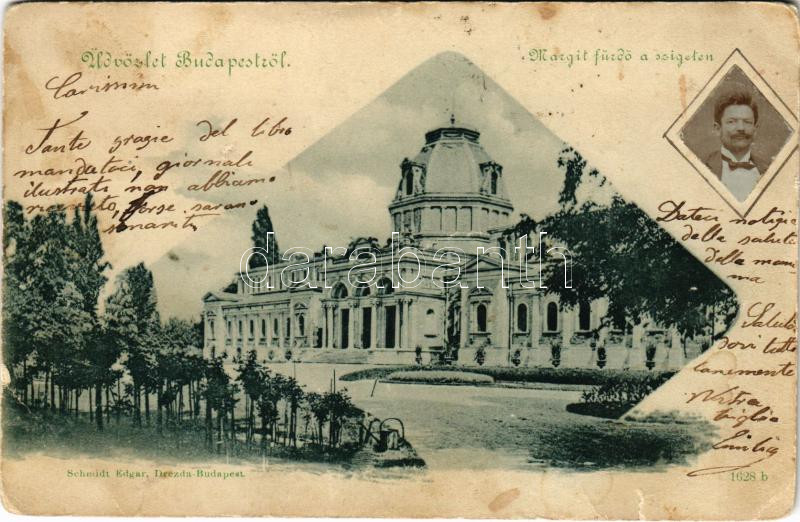 Üdvözlet Budapestről.
Margit fürdő a szigeten
Carissima
Tante grazie del libro
mandatoci, giornale
illustrati non abbiamo
ricevuto, forse saran
smarriti
darabanth
Dateci notizie
della salute
della mam
ma
Salu
tan
Vostra
figlia
Emilia
Schmidt Edgar, Drezda-Budapest.
1628 b